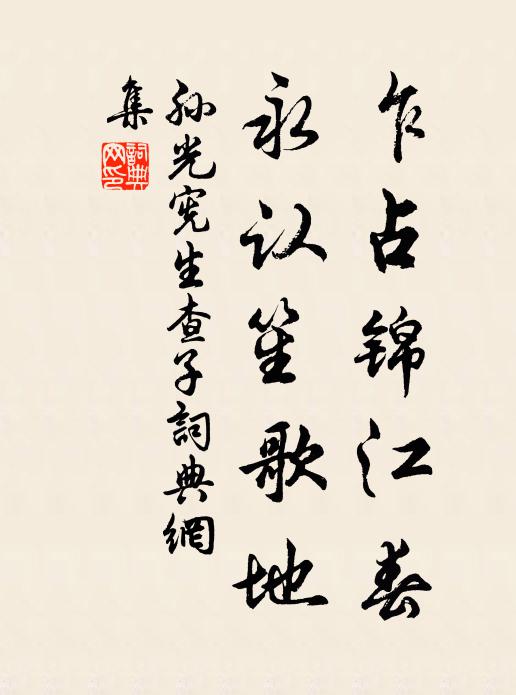 乍占锦江春
永认笙歌地
孙光宪生查子詞典網
集
詞典
网印